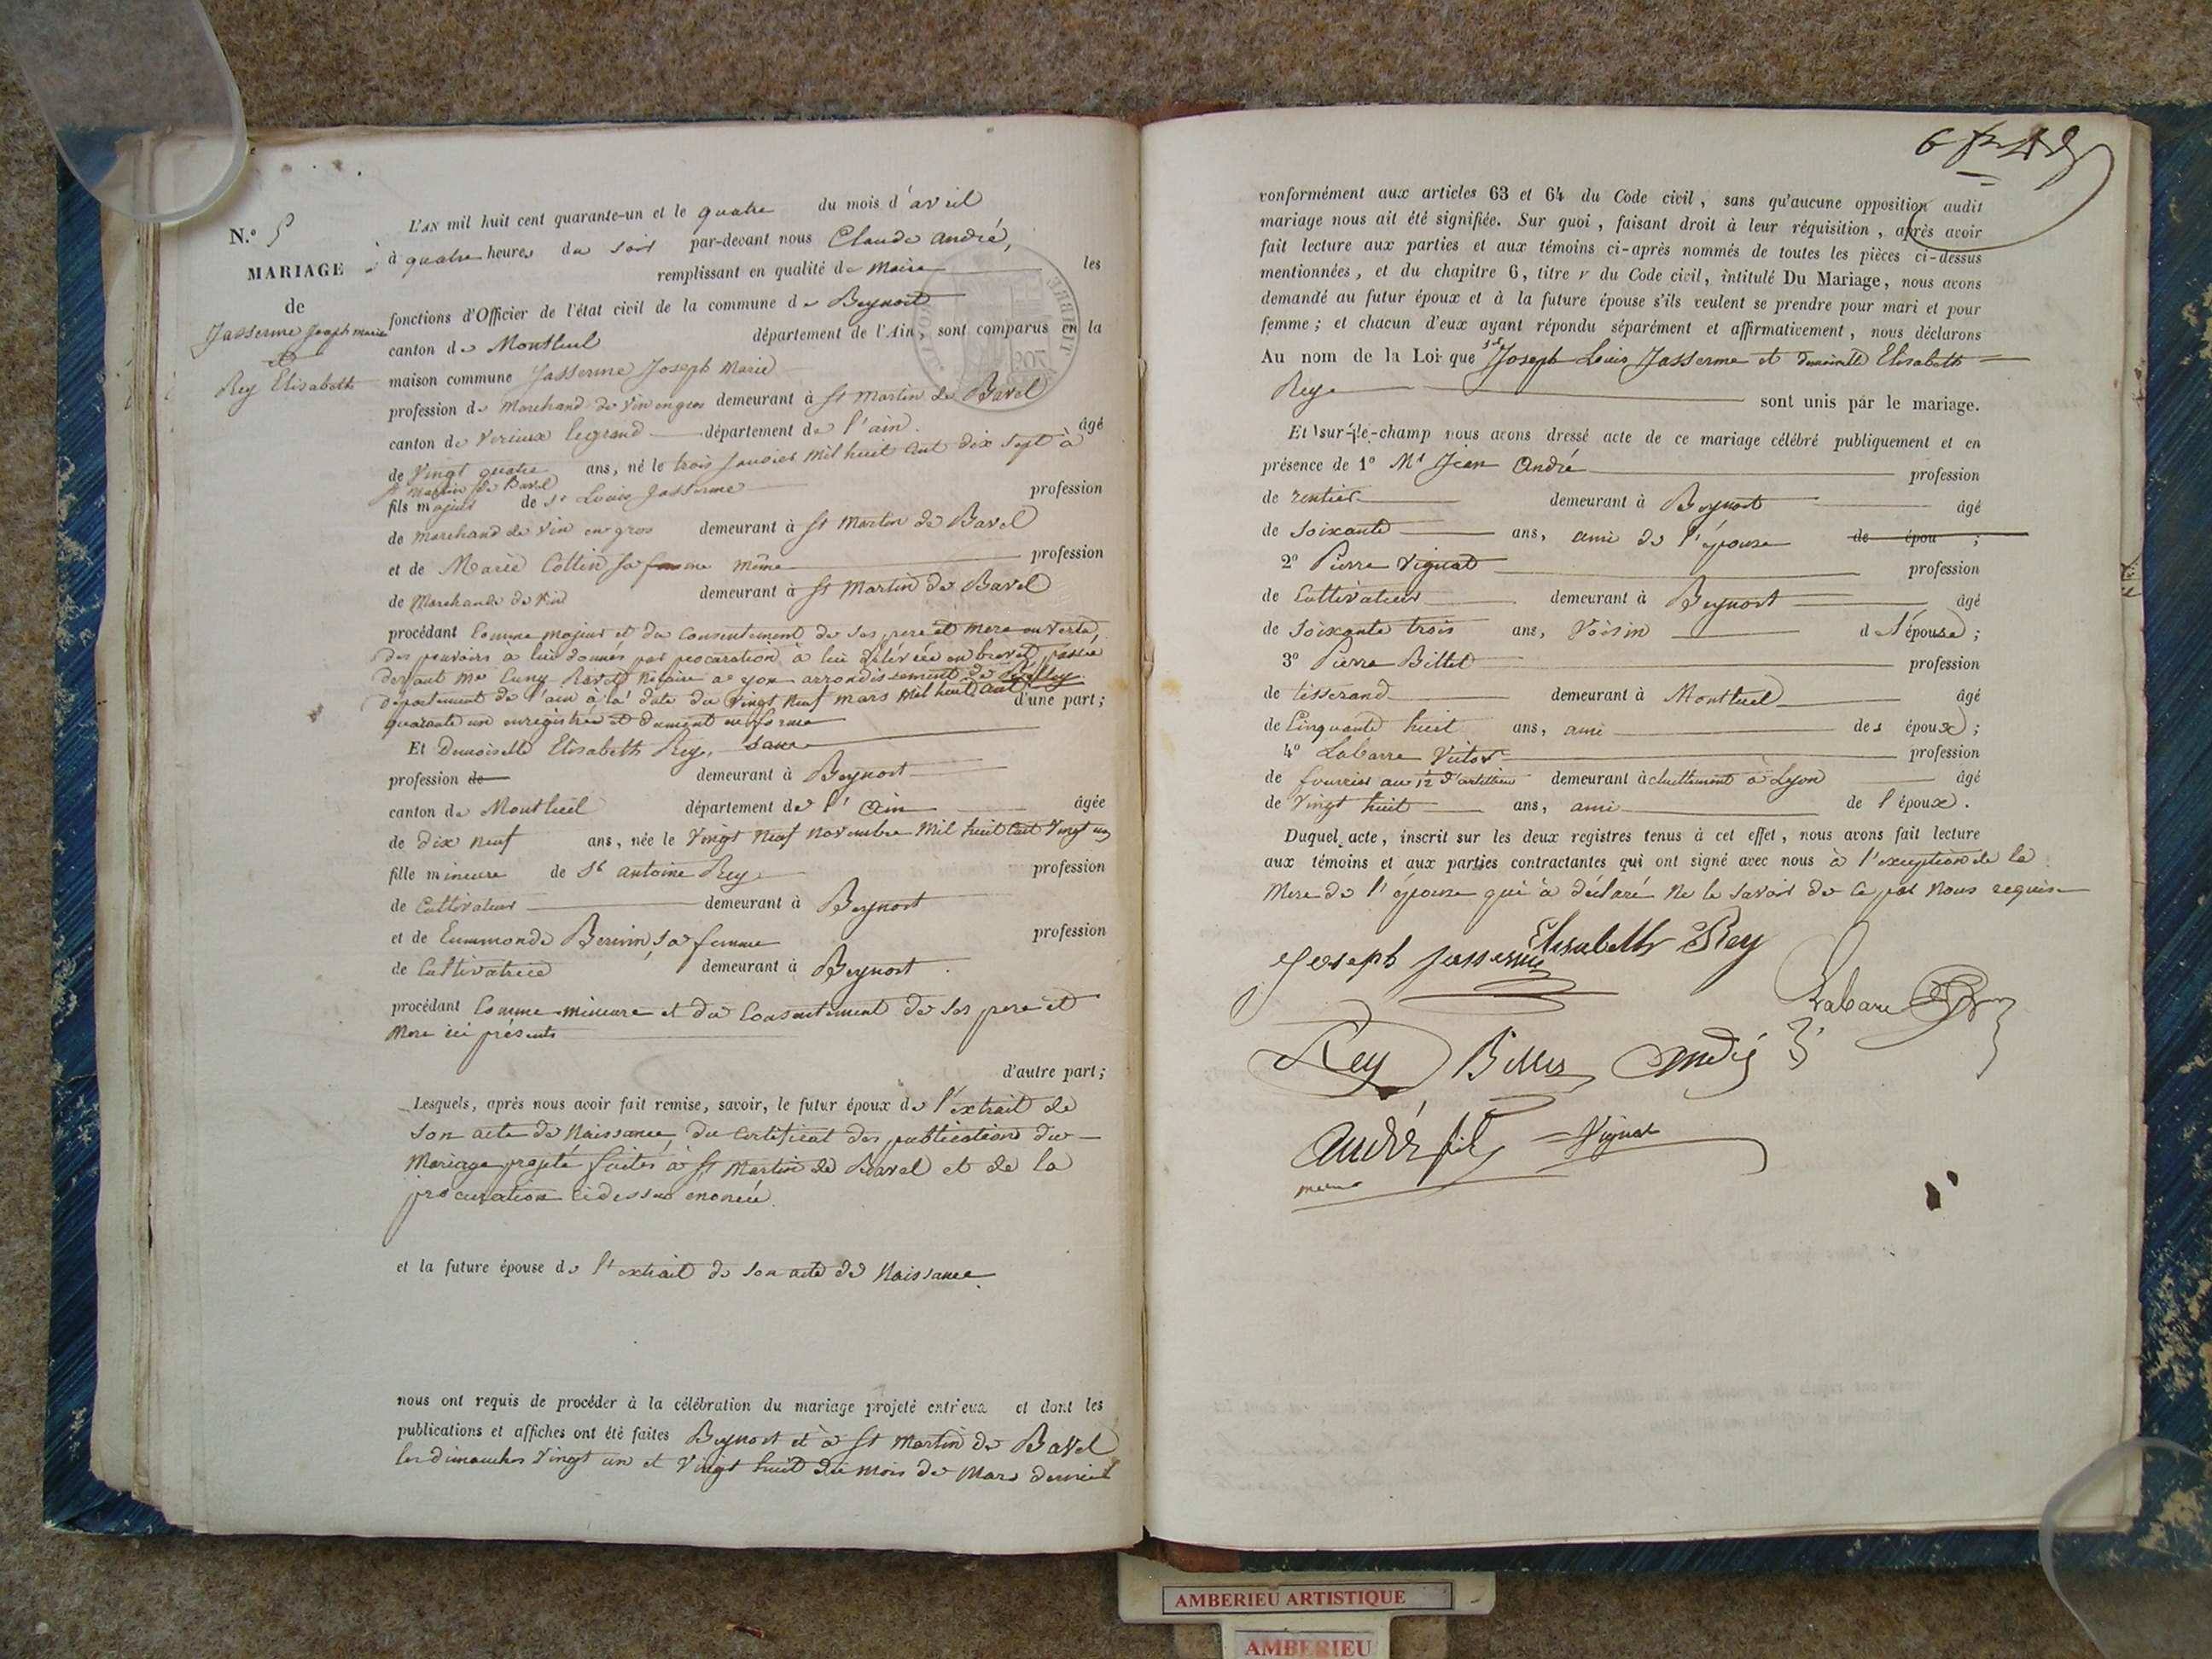 N.o 5
MARIAGE
de
Jasserme Joseph marie
et
Rey Elisabeth
L'AN mil huit cent quarante-un et le quatre du mois d'avril
à quatre heures du soir par-devant nous Claude André,
remplissant en qualité de Maire les
fonctions d'Officier de l'état civil de la commune de Beynost
canton de Montluel département de l'Ain, sont comparus en la
maison commune Jasserme Joseph Marie
profession de Marchand de vin en gros demeurant à St Martin de Bavel
canton de Virieux legrand département de l'ain. âgé
de Vingt quatre ans, né le trois janvier mil huit cent dix sept à
St Martin de Bavel
fils majeur de Sr Louis Jasserme profession
de marchand de vin en gros demeurant à St Martin de Bavel
et de Marie Cottin sa femme même profession
de Marchande de vin demeurant à St Martin de Bavel
procédant Comme majeur et du Consentement de ses pere et mere en vertu,
des pouvoirs a lui donnés par procuration à lui délivrée en brevet passée
devant Me Cuny Ravet Notaire a yon arrondissement de Belley
département de l'ain à la date du vingt neuf mars mil huit cent d'une part;
quarante un enregistrée et dument en forme
Et Demoiselle Elisabeth Rey, sans
profession de demeurant à Beynost
canton de Montluel département de l'Ain âgée
de dix neuf ans, née le Vingt neuf novembre mil huit cent Vingt un
fille mineure de Sr antoine Rey profession
de Cultivateur demeurant à Beynost
et de Eunmonde Bervin, sa femme profession
de Cultivatrice demeurant à Beynost.
procédant Comme mineure et du Consentement de ses pere et
Mere ici présents
d'autre part;
Lesquels, après nous avoir fait remise, savoir, le futur époux de l'extrait de
son acte de Naissance, du Certificat des publications du
Mariage projeté faites à St Martin de Bavel et de la
procuration cidessus enoncée.
et la future épouse de l'extrait de son acte de Naissance.
nous ont requis de procéder à la célébration du mariage projeté entr'eux et dont les
publications et affiches ont été faites Beynost et à St Martin de Bavel
les dimanches Vingt un et Vingt huit du mois de Mars dernier
6
conformément aux articles 63 et 64 du Code civil, sans qu'aucune opposition audit
mariage nous ait été signifiée. Sur quoi, faisant droit à leur réquisition, après avoir
fait lecture aux parties et aux témoins ci-après nommés de toutes les pièces ci-dessus
mentionnées, et du chapitre 6, titre v du Code civil, intitulé Du Mariage, nous avons
demandé au futur époux et à la future épouse s'ils veulent se prendre pour mari et pour
femme; et chacun d'eux ayant répondu séparément et affirmativement, nous déclarons
Au nom de la Loi que Sr Joseph Louis Jasserme et demoiselle Elisabeth
Rey sont unis par le mariage.
Et sur-le-champ nous avons dressé acte de ce mariage célébré publiquement et en
présence de 1o Mr Jean André profession
de rentier demeurant à Beynost âgé
de soixante ans, ami de l'épouse de épou ;
2o Pierre Vignat profession
de Cultivateur demeurant à Beynost âgé
de soixante trois ans, Voisin d l'épouse;
3o Pierre Billet profession
de tisserand demeurant à Montluel âgé
de Cinquante huit ans, ami des époux;
4o Labarre Victor profession
de fourrier au 12 d'artillerie demeurant à actuellement à Lyon âgé
de Vingt huit ans, ami de l'époux.
Duquel acte, inscrit sur les deux registres tenus à cet effet, nous avons fait lecture
aux témoins et aux parties contractantes qui ont signé avec nous à l'exception de la
Mere de l'épouse qui à déclaré ne le savoir de ce par nous requise
Joseph Jasserme Elisabeth Rey
Labarre
Rey Billet André
André fils Vignat
maire
AMBERIEU ARTISTIQUE
AMBERIEU